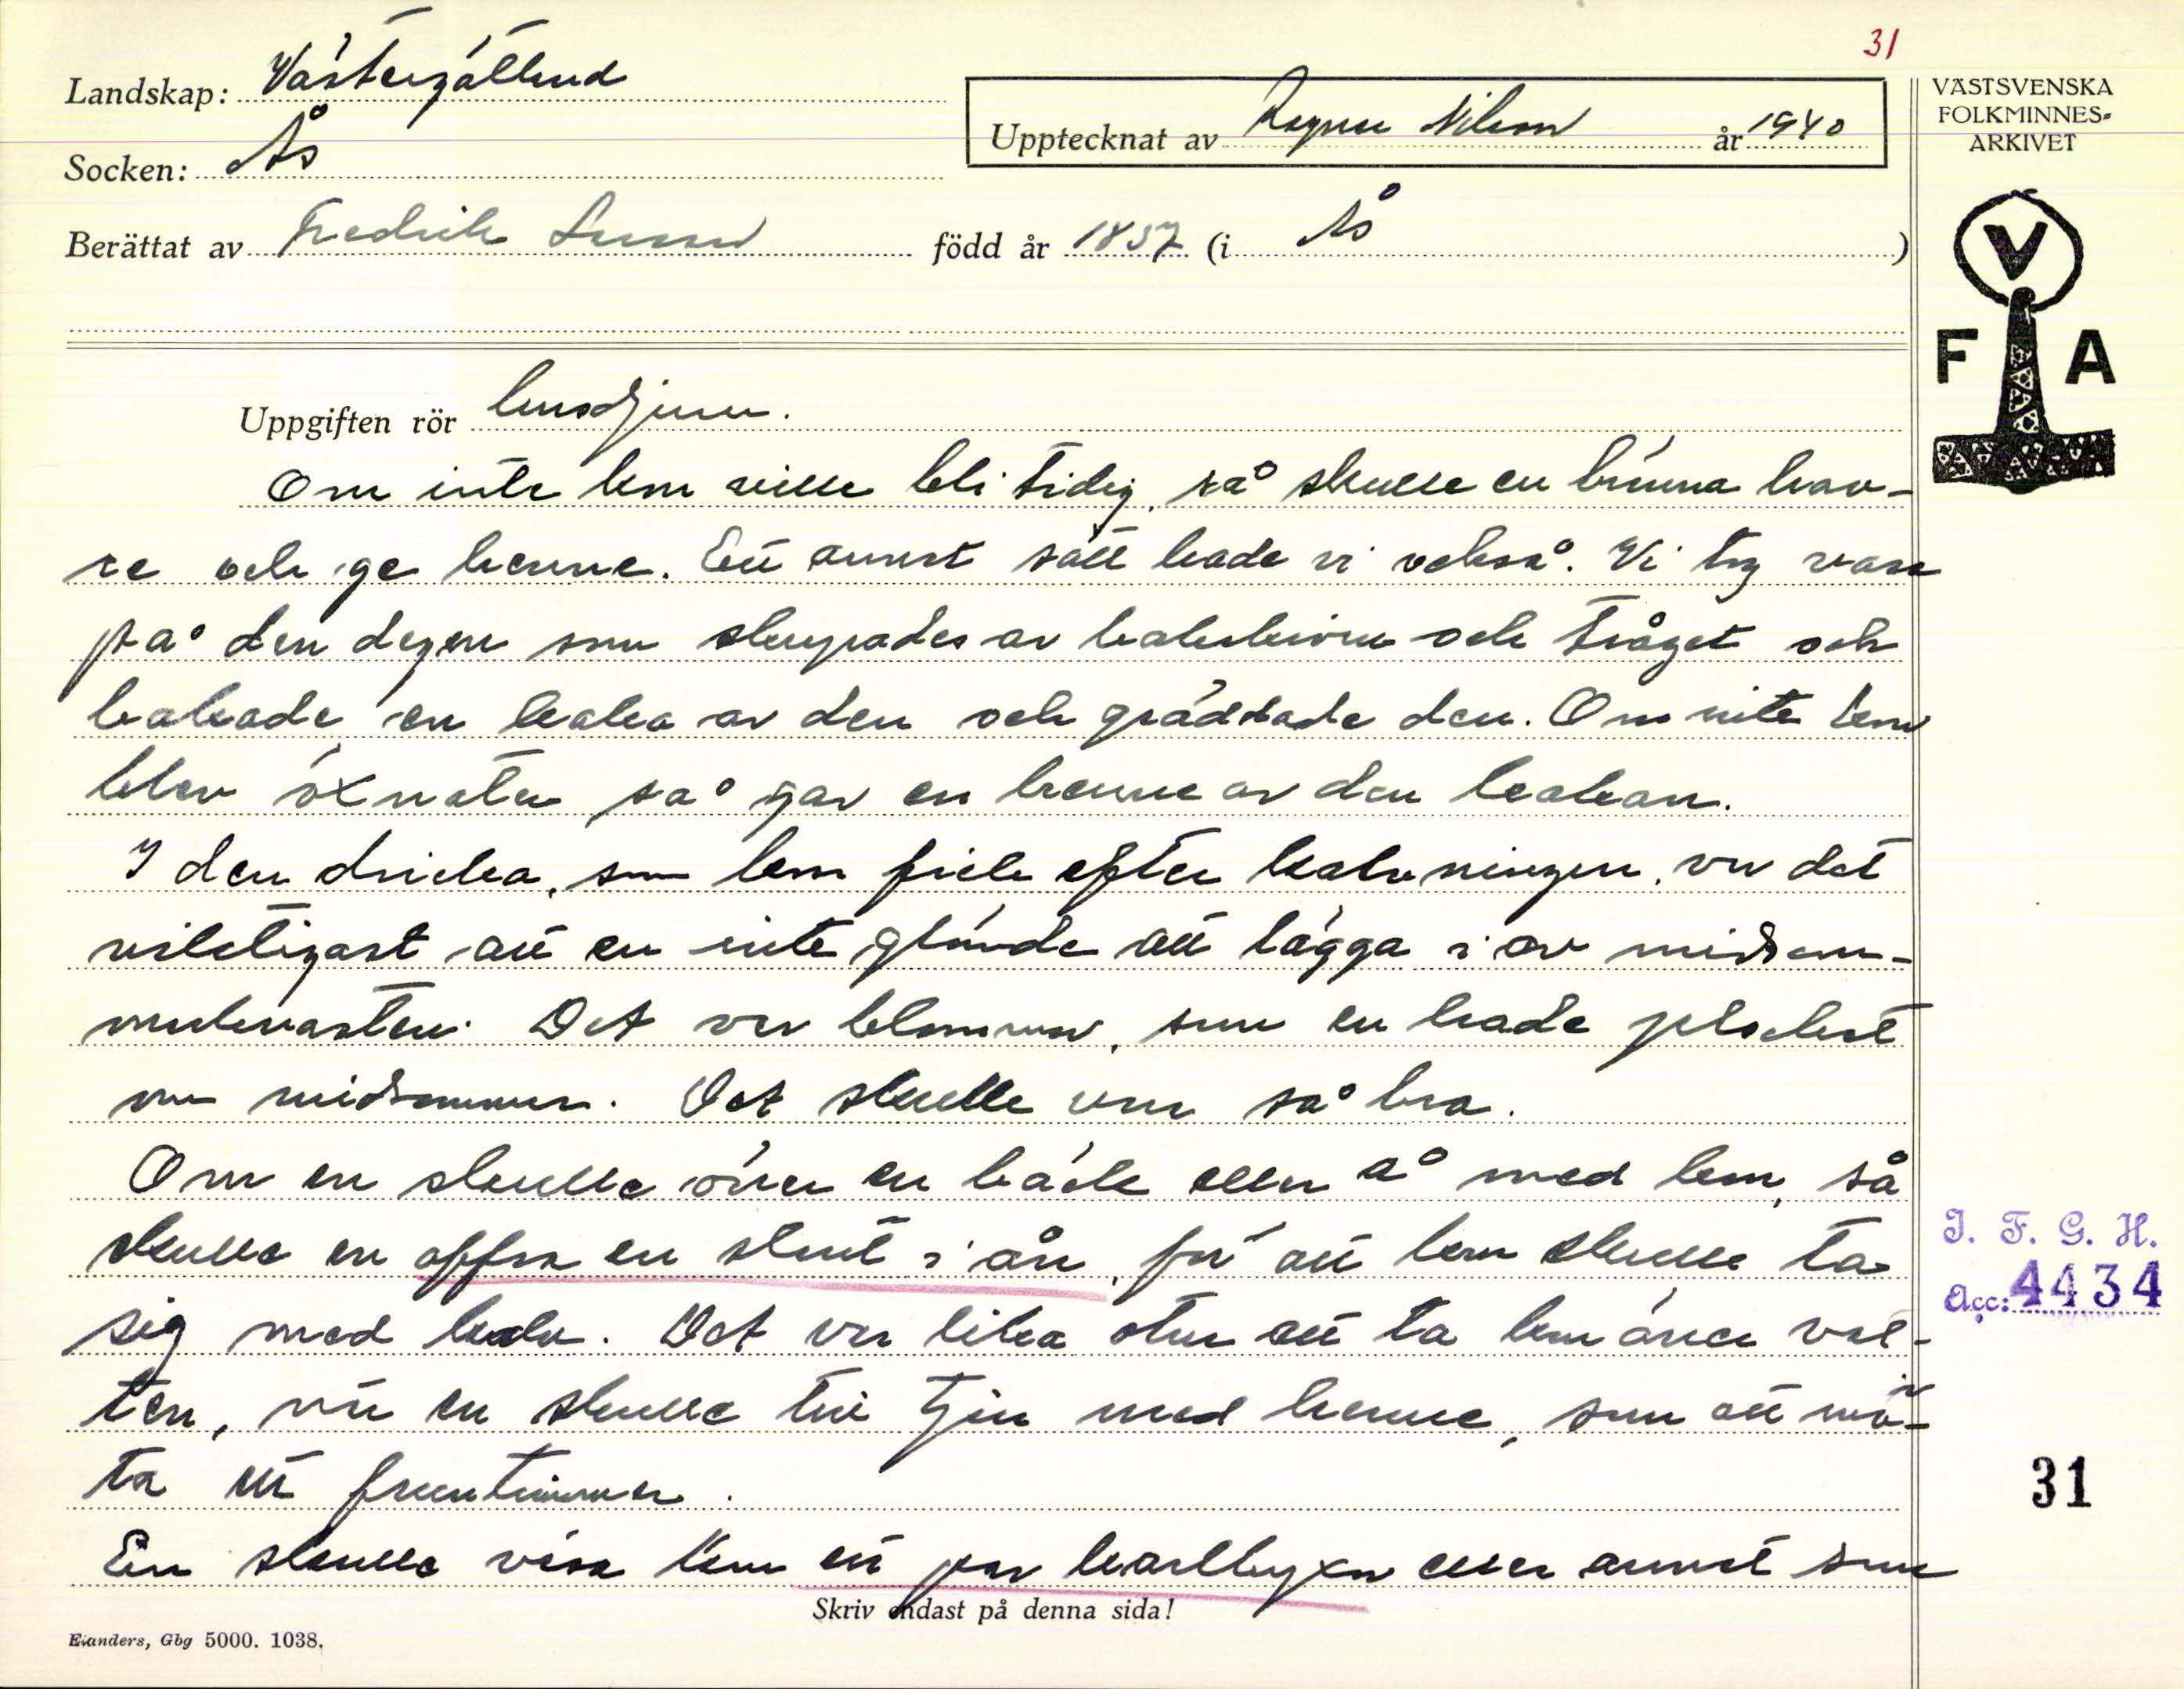 31
Landskap: Västergötland
Socken: Ås
Upptecknat av Ragnar Nilsson år 1940
Berättat av Fredrik Larsson född år 1857 (i Ås )
VÄSTSVENSKA
FOLKMINNES-
ARKIVET
V
F A
Uppgiften rör husdjuren.
Om inte kon ville bli tidig, så skulle en bränna hav-
re och ge henne. Ett annat sätt hade vi också. Vi tog vara
på den degen som skrapades av bakskivan och tråget och
bakade en kaka av den och gräddade den. Om inte kon
blev öxnater så gav en henne av den kakan.
I den dricka, som kon fick efter kalvningen, var det
viktigast att en inte glömde att lägga i av midsom-
markvasten. Det var blommor, som en hade plockat
om midsommar. Det skulle vara så bra.
Om en skulle över en bäck eller å med kon, så
skulle en offra en slant i ån, för att kon skulle ta
sig med kalv. Det var lika otur att ta kon över vat-
ten, när en skulle till tjur med henne, som att mö-
ta ett fruntimmer.
En skulle visa kon ett par karlbyxor eller annat som
Skriv endast på denna sida!
Elanders, Gbg 5000. 1038.
I. F. G. H.
Acc: 4434
31